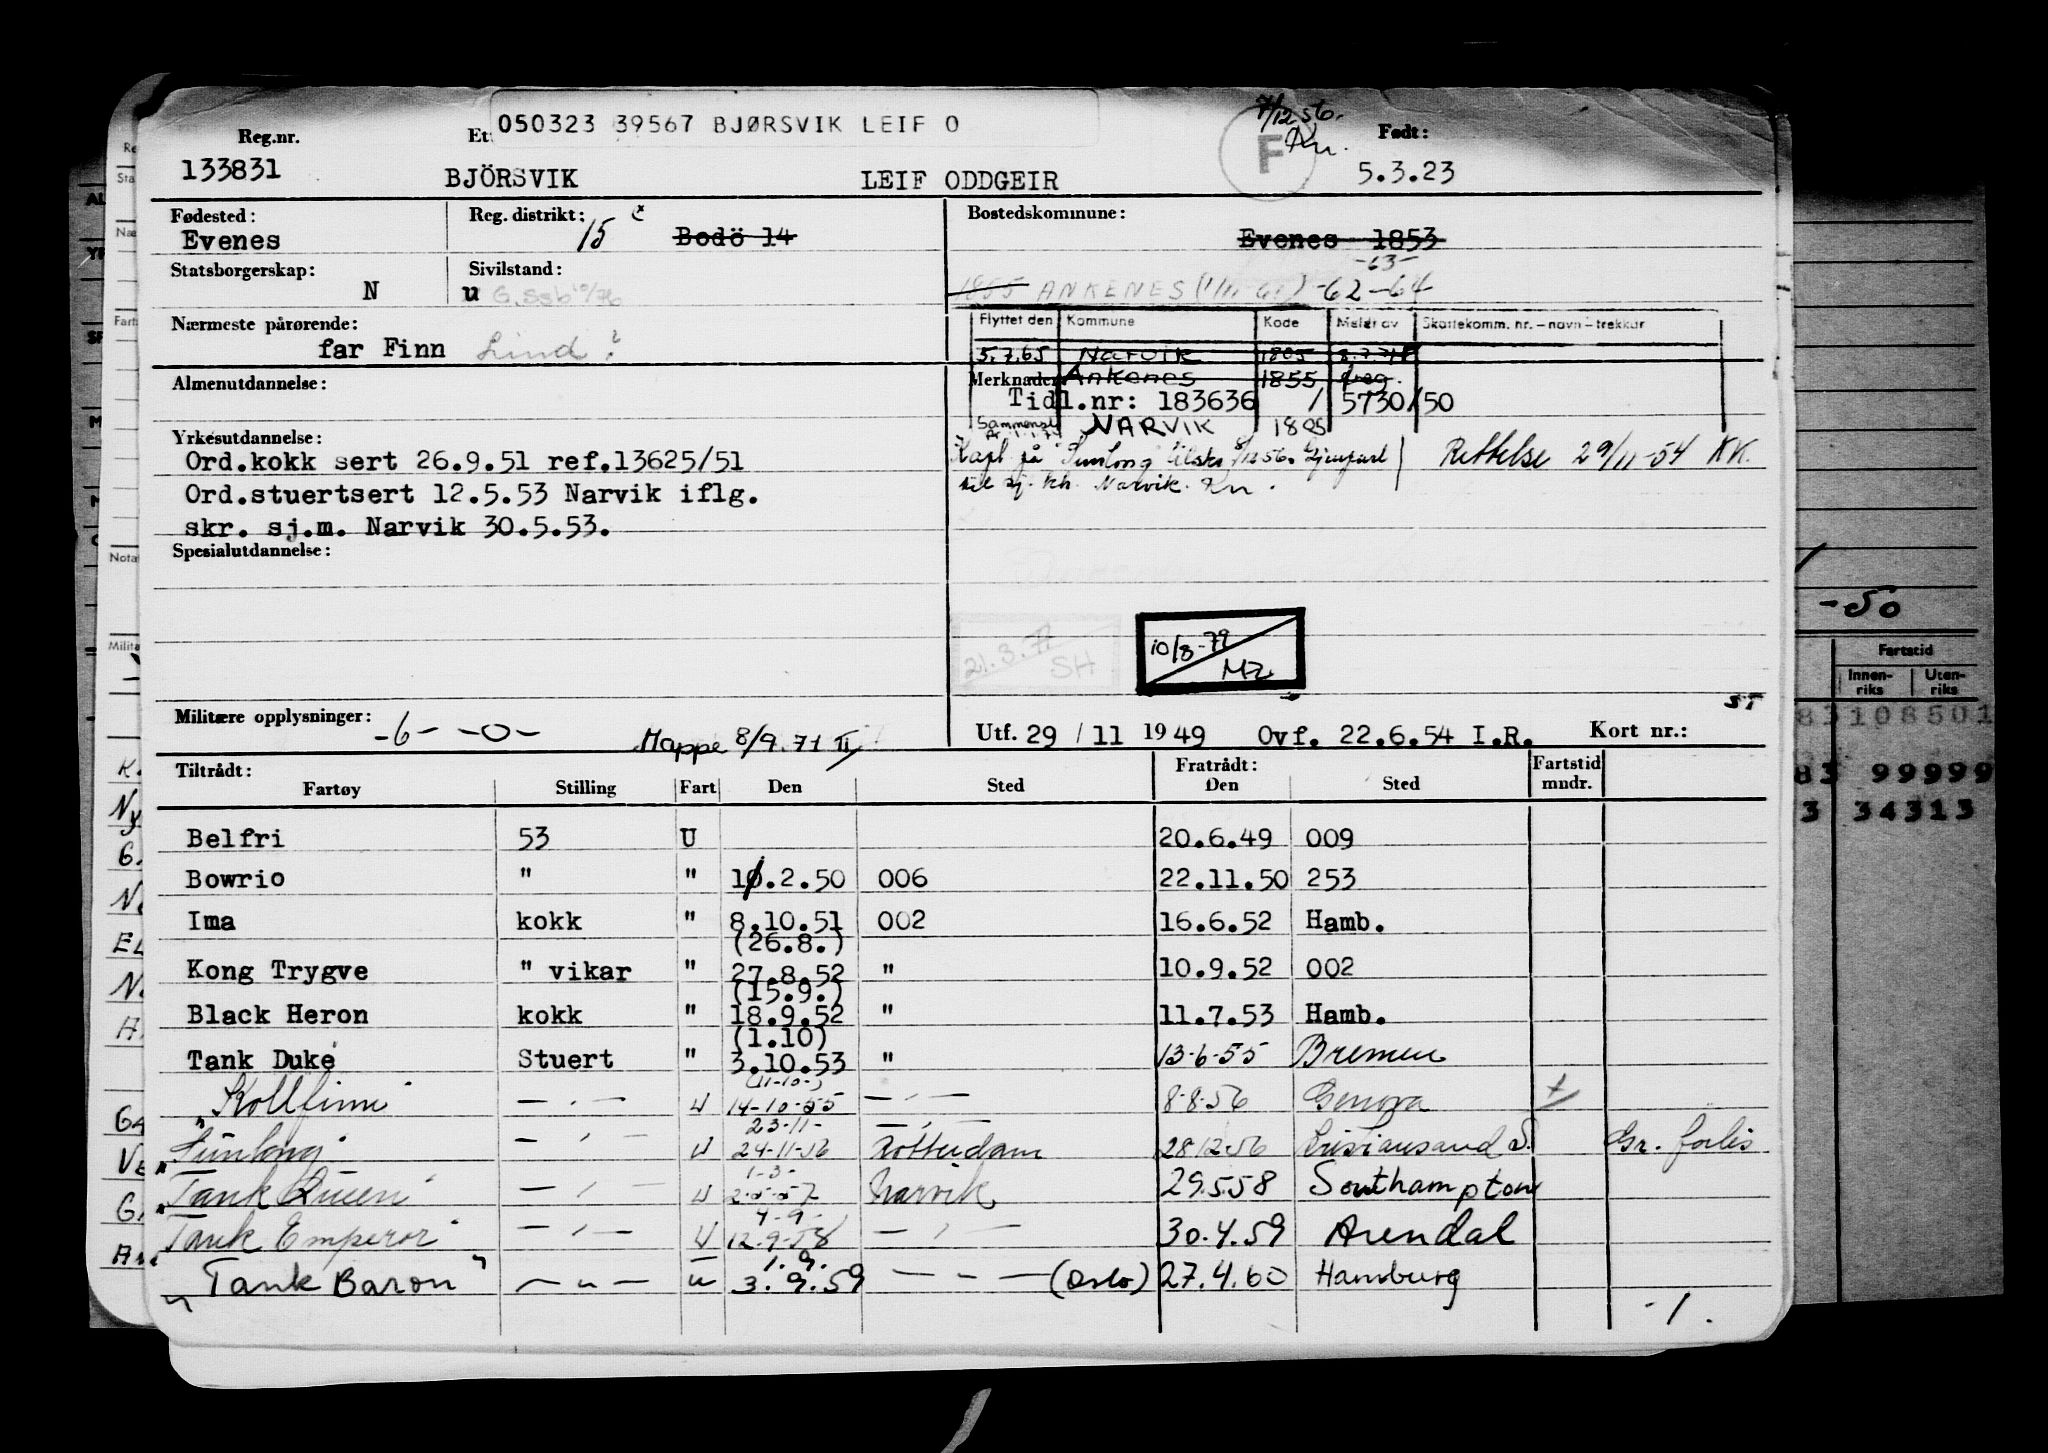 050323 39567 BJØRSVIK LEIF O
7/12 56.
Kn.
F
Reg.nr. Født:
133831 BJÖRSVIK LEIF ODDGEIR 5.3.23
Fødested: Reg. distrikt: Bostedskommune:
Evenes 15 Bodö 14 Evenes 1853
-63-
Statsborgerskap: Sivilstand:
N u G. Ssb 10/76 1855 ANKENES -62-64
Nærmeste pårørende:
far Finn Lind?
Flyttet den Kommune Kode Meldt av Skattekomm. nr. – navn – trekkår
5.7.65 Narvik 1805
Almenutdannelse:
Merknader: Ankenes 1855
Tidl.nr: 183636 / 5730/50
NARVIK 1805
Yrkesutdannelse:
Ord.kokk sert 26.9.51 ref.13625/51
Ord.stuertsert 12.5.53 Narvik iflg.
skr. sj.m. Narvik 30.5.53.
Rettelse 29/11-54 KK.
Spesialutdannelse:
21.3.77 SH
10/8-79 MZ
ST
Militære opplysninger: -6- -0- Mappe 8/9.71
Utf. 29 / 11 1949 Ovf. 22.6.54 I.R. Kort nr.:
Tiltrådt: Fratrådt: Fartstid
Fartøy Stilling Fart Den Sted Den Sted mndr.
Belfri 53 U 20.6.49 009
Bowrio " " 10.2.50 006 22.11.50 253
Ima kokk " 8.10.51 002 16.6.52 Hamb.
(26.8.)
Kong Trygve " vikar " 27.8.52 " 10.9.52 002
(15.9.)
Black Heron kokk " 18.9.52 " 11.7.53 Hamb.
(1.10)
Tank Duke Stuert " 3.10.53 " 13-6-55 Bremen
(11-10-)
"Kollfinn" — " — U 14-10-55 — " — 8-8-56 Genova
23-11-
"Sunlong" — " — U 24-11-56 Rotterdam 28 12-56 Kristiansand S. Gr. forlis
1-3-
"Tank Queen" — " — U 2-5-57 Narvik 29.5.58 Southampton
4-9-
"Tank Emperor" — " — U 12-9-58 — " — 30.4.59 Arendal
1.9.
"Tank Baron" — " — u 3.9.59 — " — (Oslo) 27.4.60 Hamburg
-1.
-50
Fartstid
Innen-riks Uten-riks
83 108501
83 99999
3 34313